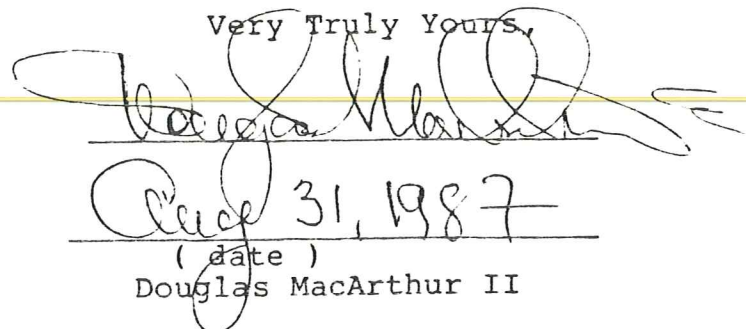 Very Truly Yours,
Douglas MacArthur II
Aug 31, 1987
( date )
Douglas MacArthur II